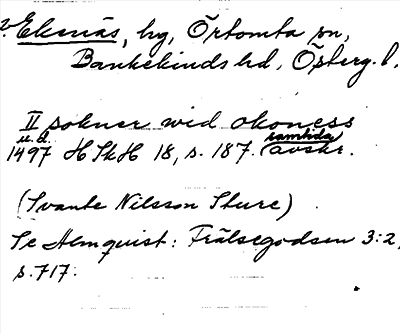 v. Ekenäs, hg, Örtomta sn,
Bankekinds hd, Österg. l.
II sokner wid okoness
u.d. samtida
1497 HSkH 18, s. 187. (avskr.
(Svante Nilsson Sture)
Se Almquist: Frälsegodsen 3:2,
s. 717.